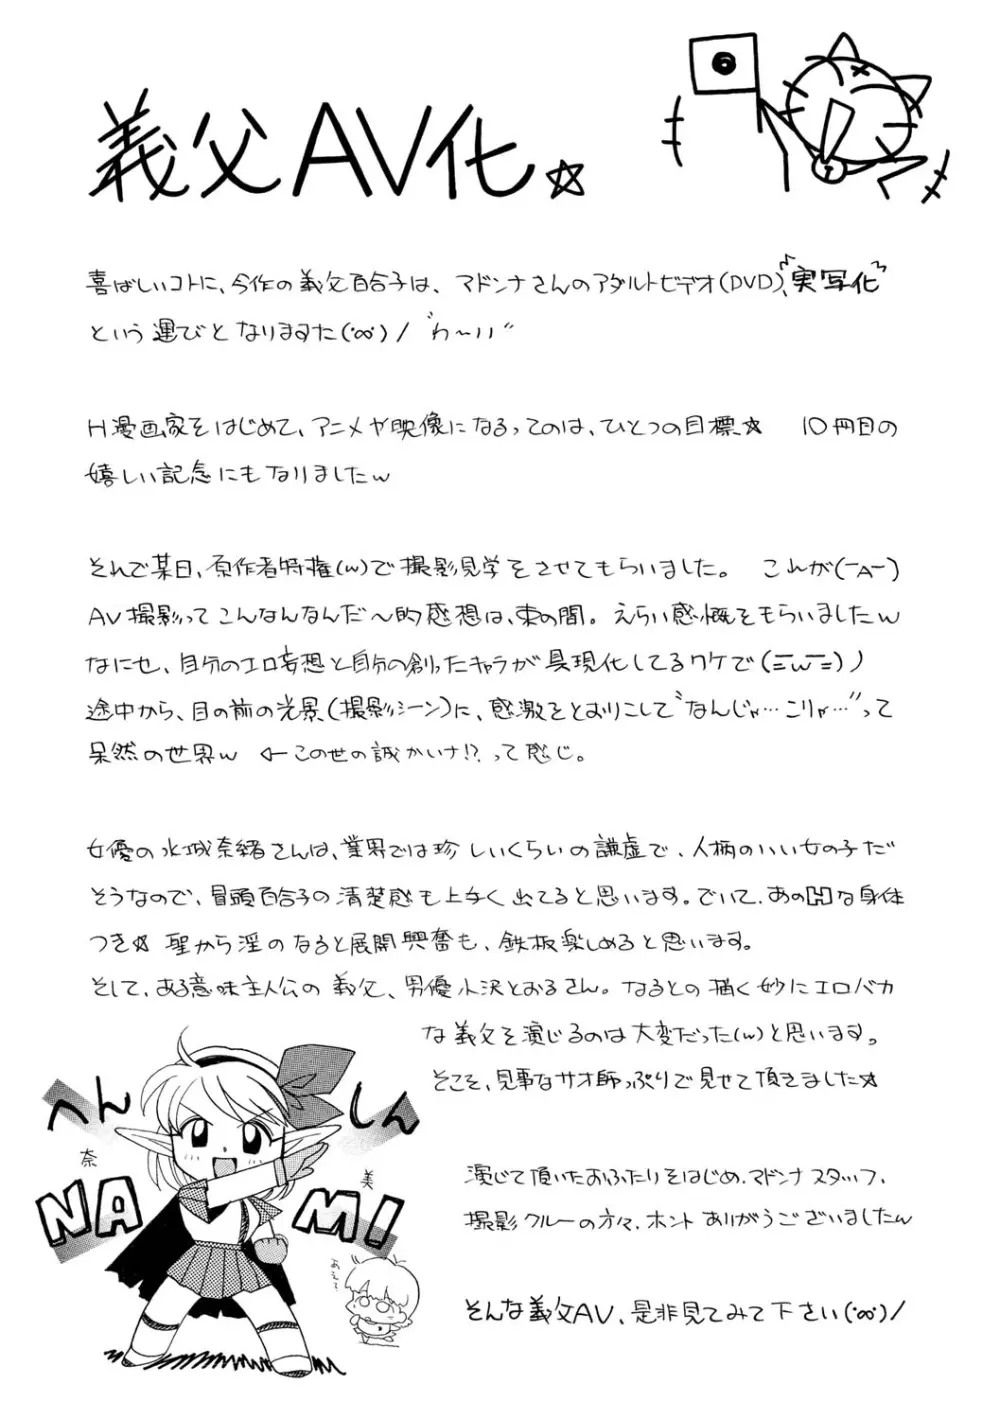 義父AV化☆
喜ばしいコトに、今作の義父百合子は、マドンナさんのアダルトビデオ(DVD)、実写化
という運びとなりますた(･∞･)/ ゛わ～いい"
H漫画家をはじめて、アニメや映像になるってのは、ひとつの目標☆ 10冊目の
嬉しい記念にもなりましたw
それで某日、原作者特権(w)で撮影見学をさせてもらいました。 これが(ーAー)
AV撮影ってこんなんなんだ～的感想は、束の間。えらい感慨をもらいましたw
なにせ、自分のエロ妄想と自分の創ったキャラが具現化してるワケで(=w=)ノ
途中から、目の前の光景(撮影シーン)に、感激をとおりこして"なんじゃ…こりゃ…"って
呆然の世界w ←この世の誠かいナ!?って感じ。
女優の水城奈緒さんは、業界では珍しいくらいの謙虚で、人柄のいい女の子だ
そうなので、冒頭百合子の清楚感も上手く出てると思います。でいて、あのHな身体
つき☆ 聖から淫のなると展開興奮も、鉄板楽しめると思います。
そして、ある意味主人公の義父、男優小沢とおるさん。なるとの描く妙にエロバカ
な義父を演じるのは大変だった(w)と思います。
そこそ、見事なサオ師っぷりで見せて頂きました☆
へんしん
奈
美
NAMI
あえて
演じて頂いたおふたりをはじめ、マドンナスタッフ、
撮影クルーの方々、ホントありがうございましたw
そんな義父AV、是非見てみて下さい(･∞･)/